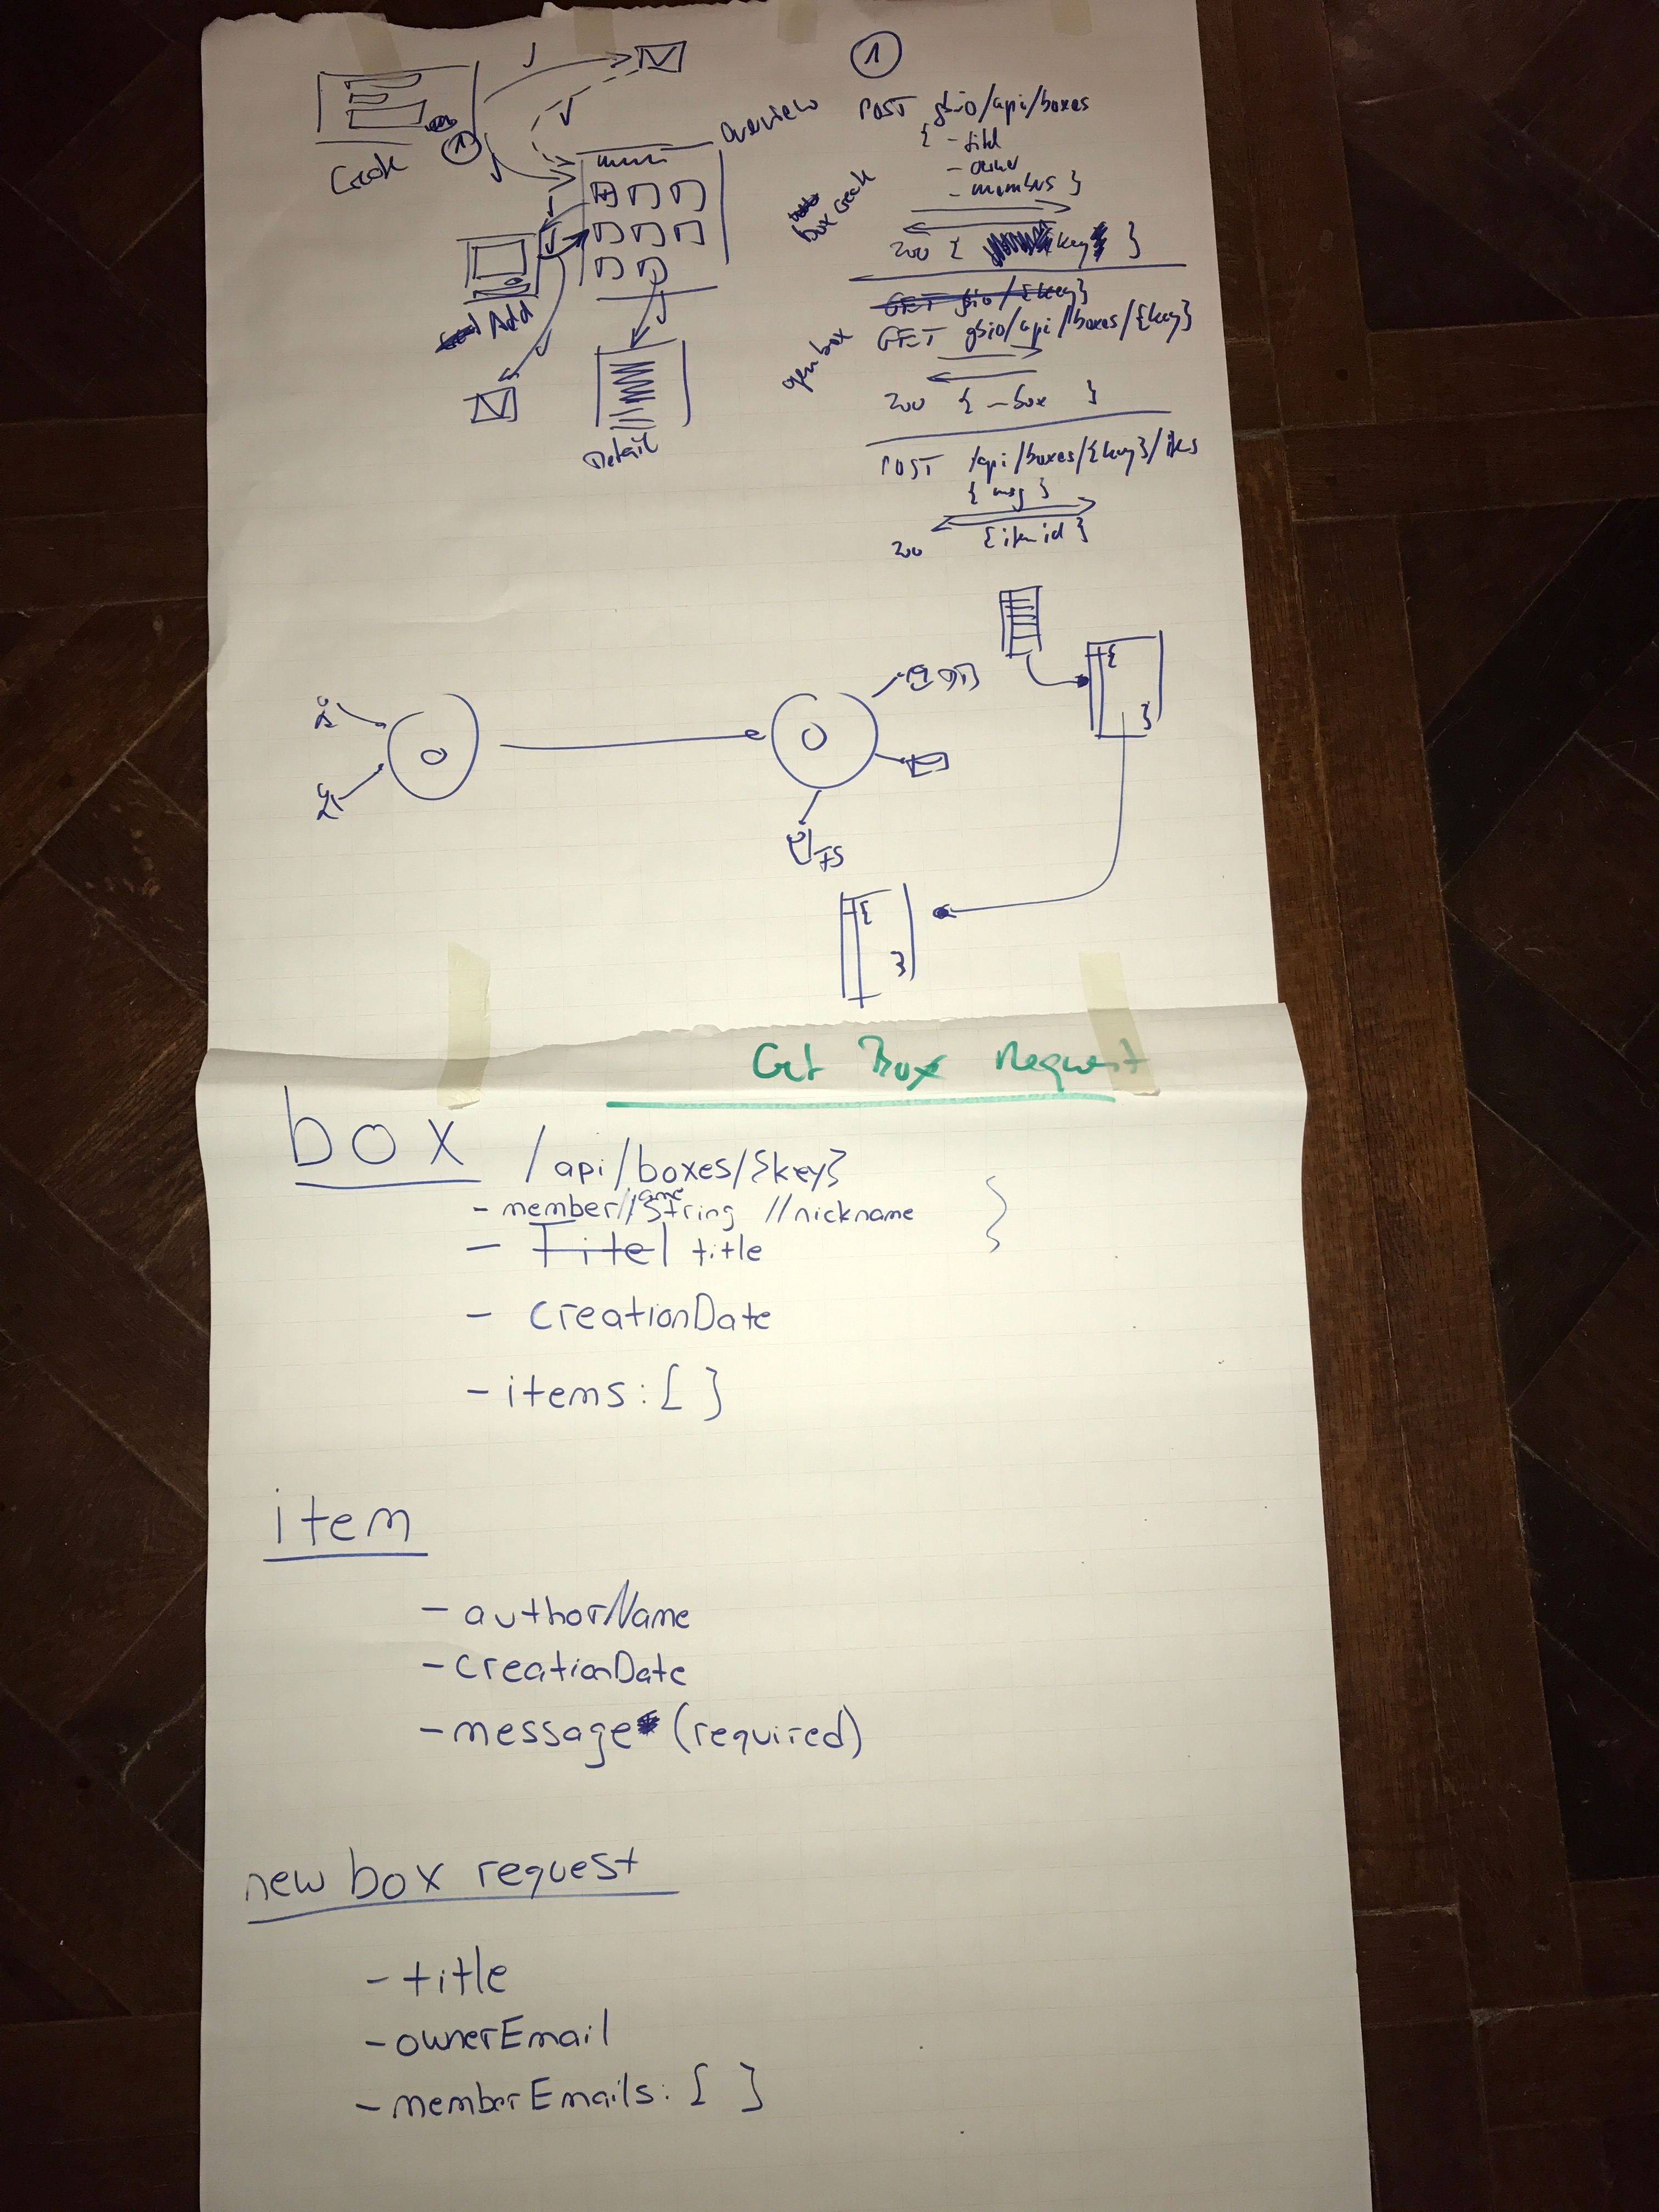 Overview
Add
Detail
1
POST gbio/api/boxes
{ - titel
- owner
- members }
box
200 { key }
GET gbio/{key}
open box
GET gbio/api/boxes/{key}
200 { - box }
POST /api/boxes/{key}/
{ msg }
200 { id }
FS
Get Box Request
box /api/boxes/{key}
- member String //nickname
- Titel title
- creationDate
- items: [ ]
item
- authorName
- creationDate
- message (required)
new box request
- title
- ownerEmail
- memberEmails: [ ]